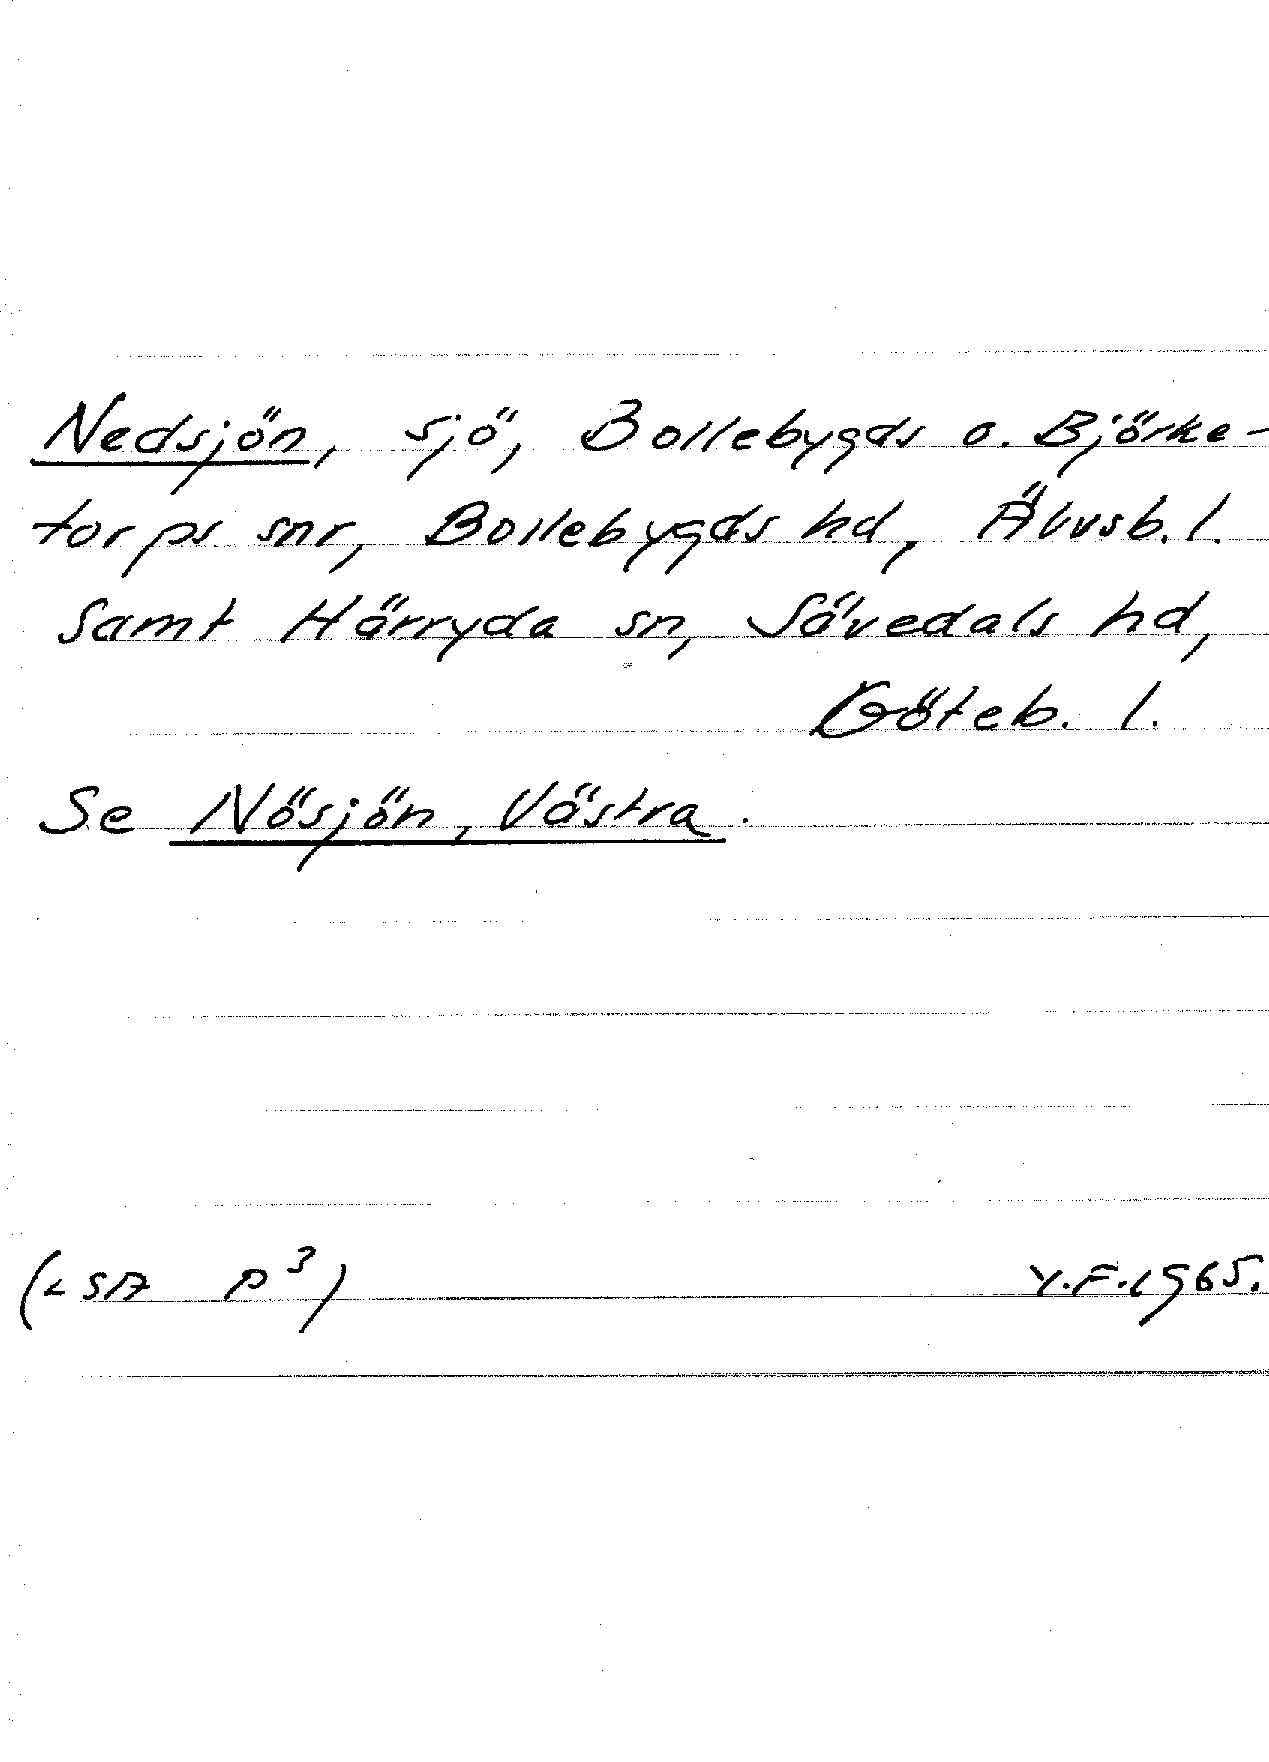 Nedsjön, sjö, Bollebygds o. Björke-
torps snr, Bollebygds hd, Älvsb. l.
samt Härryda sn, Sävedals hd,
Göteb. l.
Se Nösjön, Västra.
(LSA P³) Y.F. 1965.